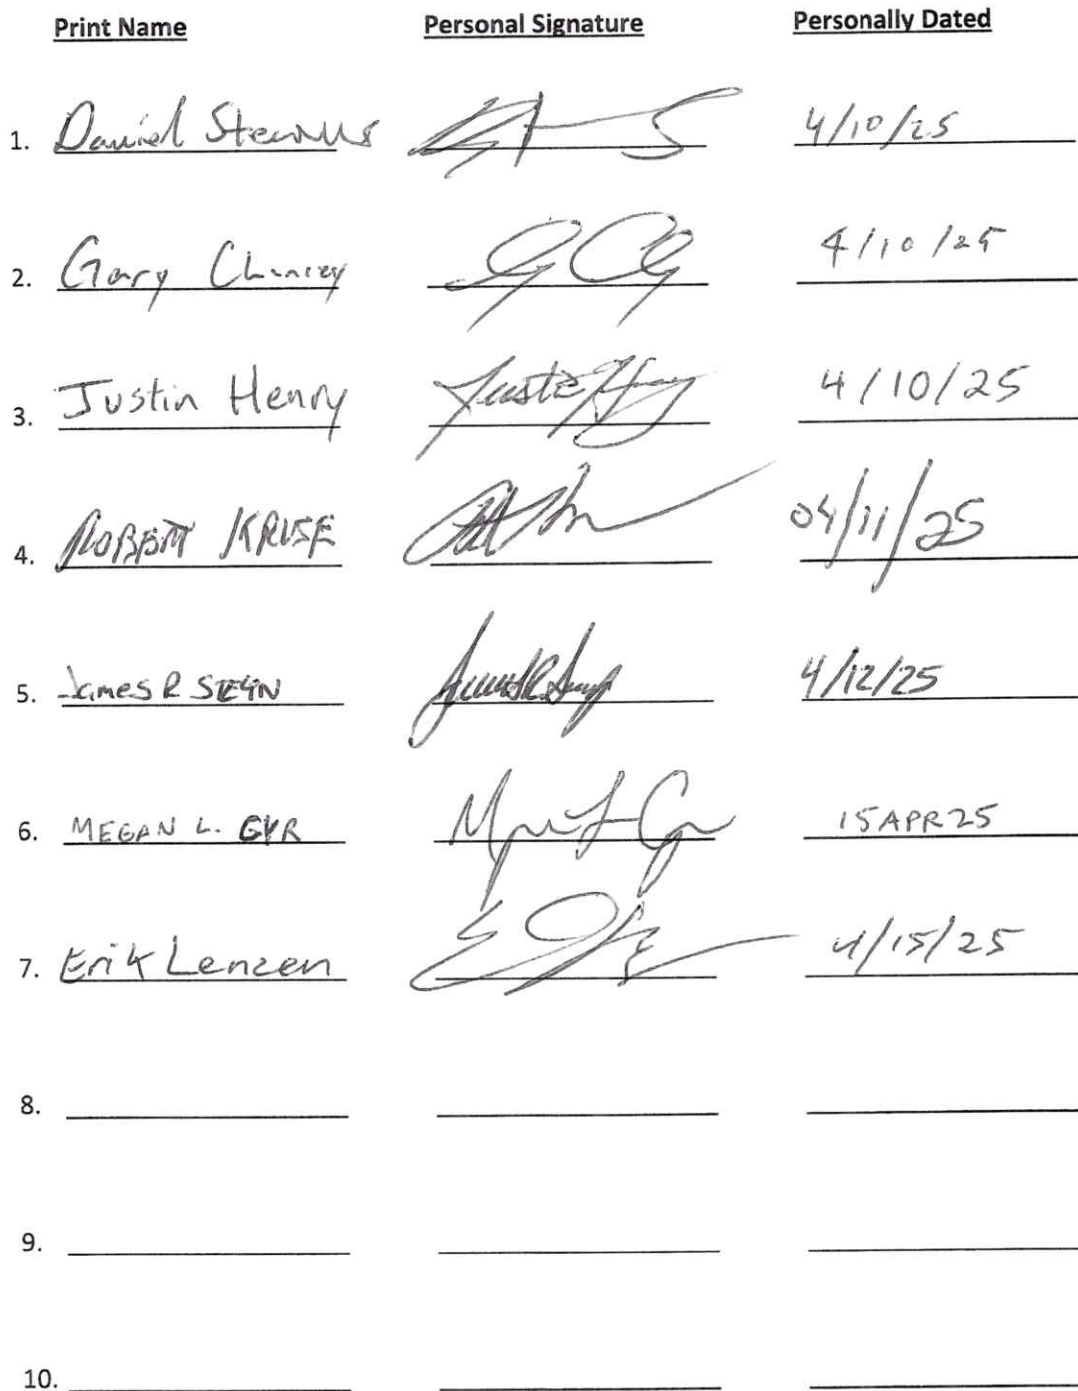 Print Name Personal Signature Personally Dated
1. Daniel 4/10/25
2. Gary 4/10/25
3. Justin Henry Justin Henry 4/10/25
4. ROBERT KRUSE 04/11/25
5. James R 4/12/25
6. MEGAN L. GYR 15APR25
7. Erik Lenzen 4/15/25
8.
9.
10.